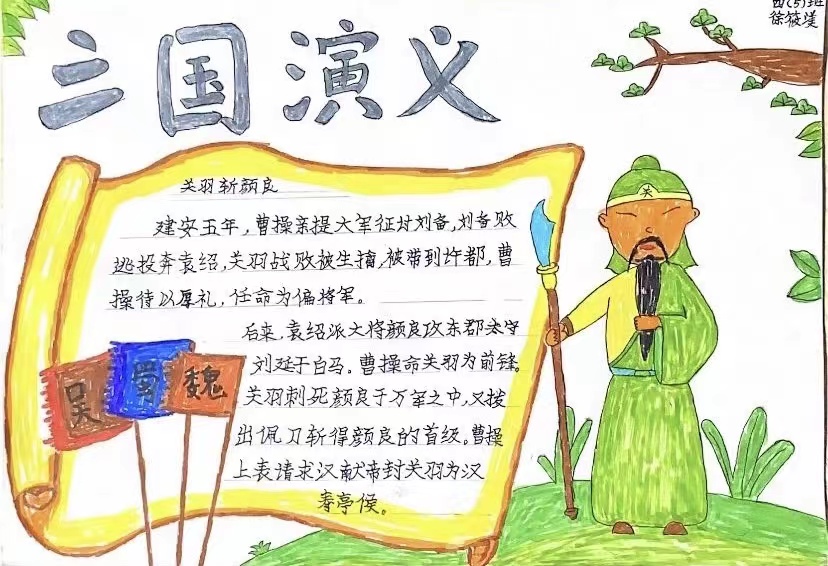 四(5)班
徐筱墐
三国演义
关羽斩颜良
建安五年，曹操亲提大军征讨刘备，刘备败
逃投奔袁绍，关羽战败被生擒，被带到许都，曹
操待以厚礼，任命为偏将军。
后来，袁绍派大将颜良攻东郡太守
刘延于白马。曹操命关羽为前锋，
关羽刺死颜良于万军之中，又拔
出佩刀斩得颜良的首级。曹操
上表请求汉献帝封关羽为汉
寿亭侯。
吴
蜀
魏
关